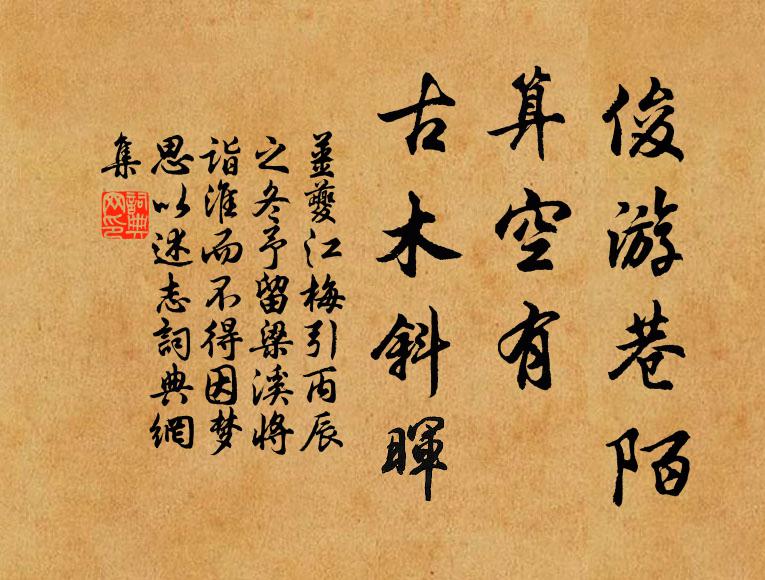 俊游巷陌
算空有
古木斜暉
薑夔江梅引丙辰
之冬予留梁溪將
詣淮而不得因梦
思以述志詞典網
集
詞典
网印